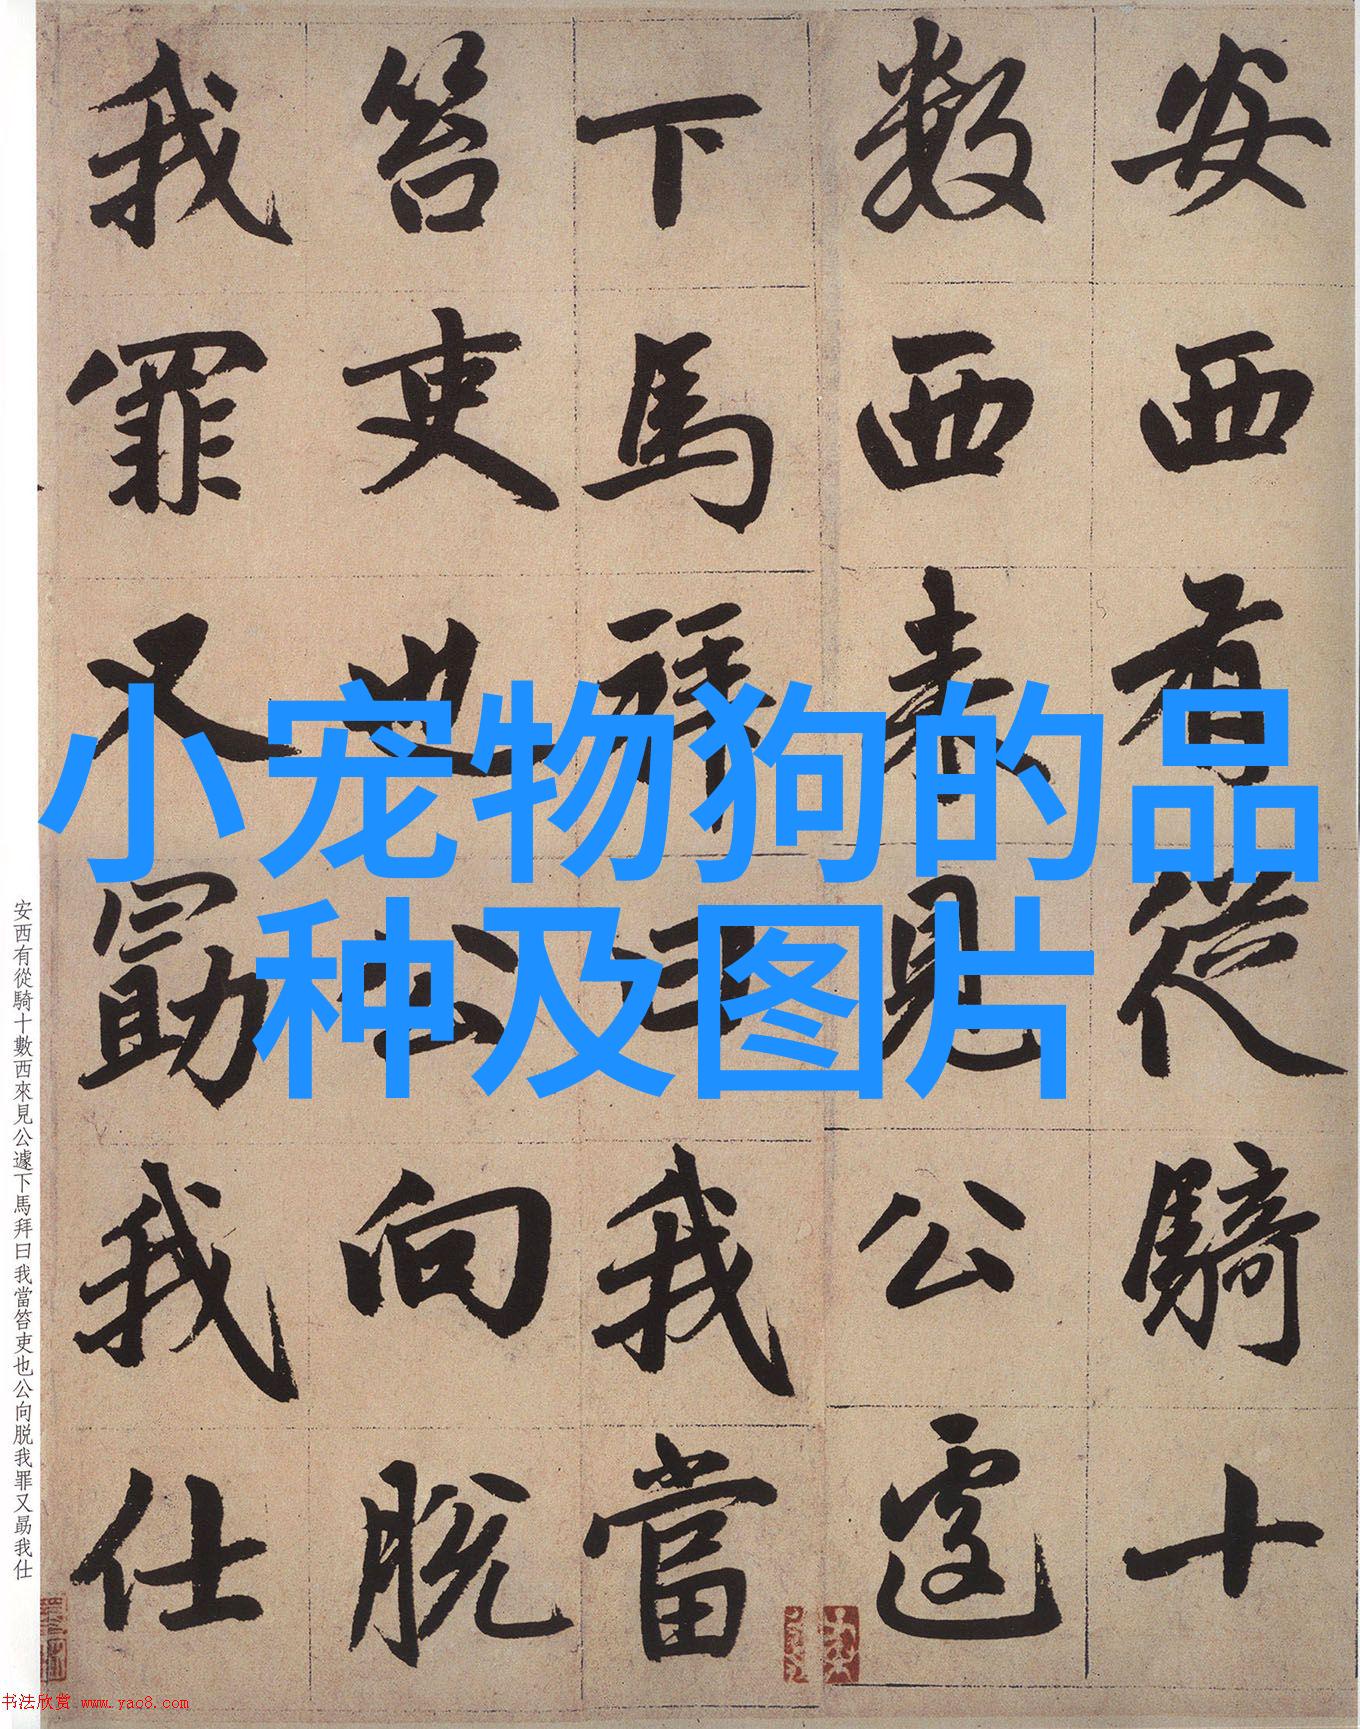 安西有從騎十
數西来見公遽
下馬拜曰我當
笞吏也公向脱
我罪又勗我仕
小宠物狗的品
种及图片
安西有從騎十數西來見公遽下馬拜曰我當笞吏也公向脱我罪又勗我仕
书法欣赏 www.yac8.com